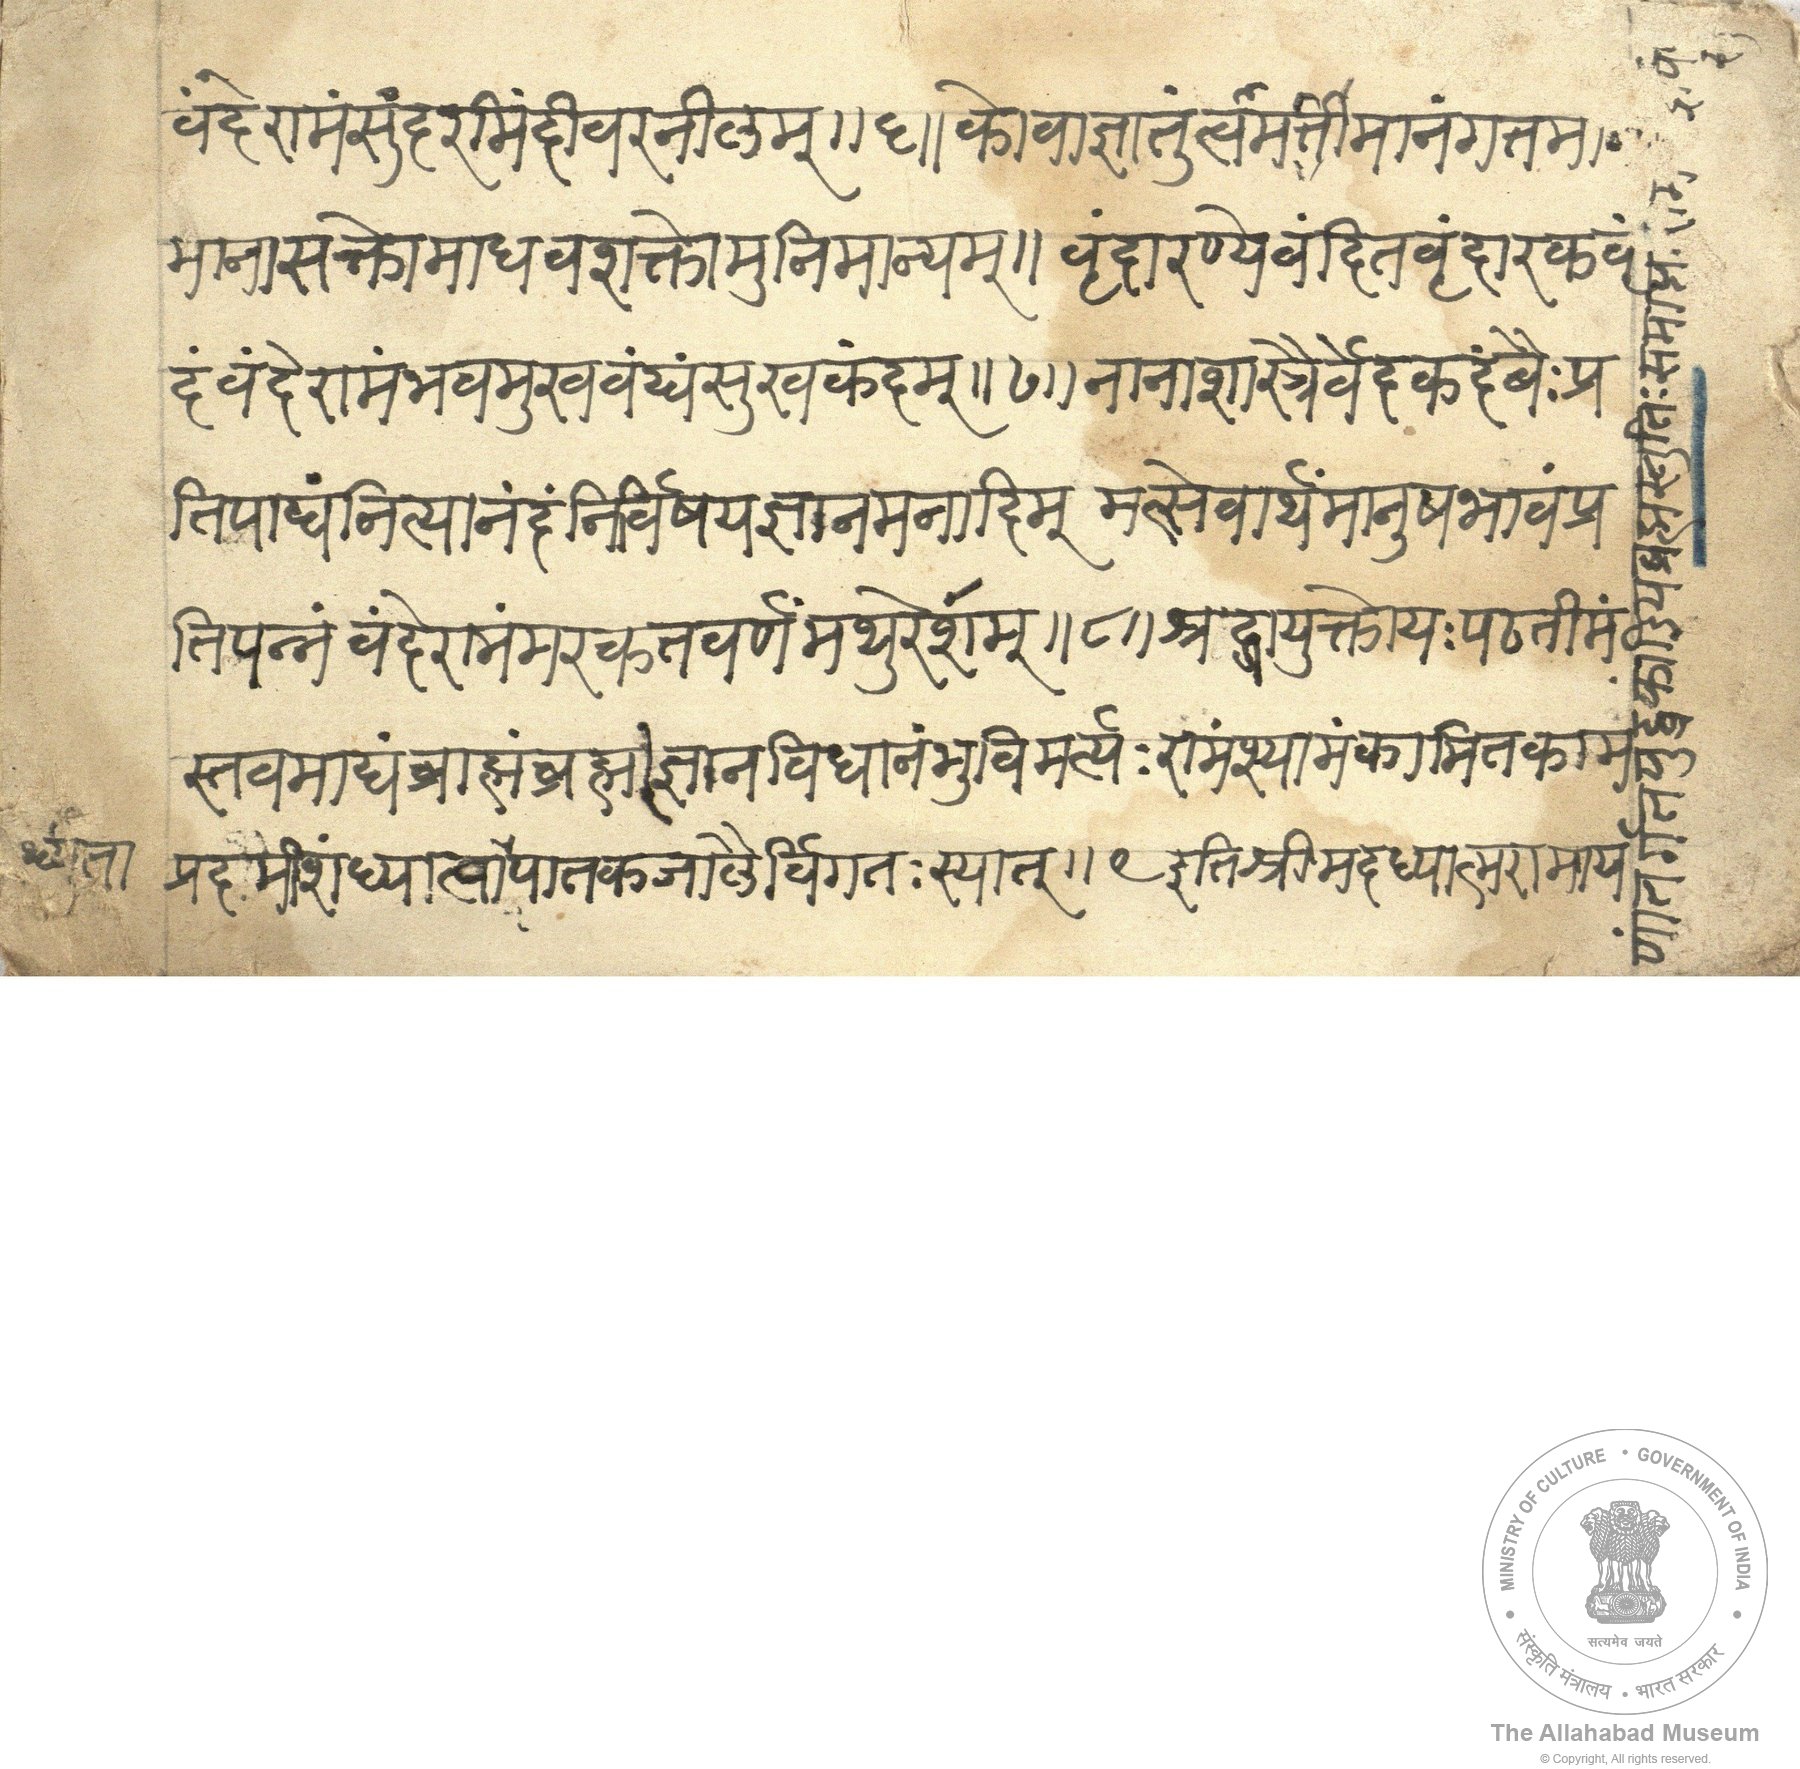 वंदेरामंसुंदरमिंदीवरनीलम्॥६॥कोवाज्ञातुंत्वमर्तीमानंगतम
मानासक्तोमाधवशक्तोमुनिमान्यम्॥ वृंदारण्येवंदितवृंदारकवृं
दंवंदेरामंभवमुखवंद्यंसुखकंदम्॥७॥नानाशास्त्रैर्वेदकदंबैःप्र
तिपाद्यंनित्यानंदंनिर्विषयज्ञानमनादिम् मत्सेवार्थंमानुषभावंप्र
तिपन्नं वंदेरामंमरकतवर्णंमथुरेशंम्॥८॥श्रद्धायुक्तोयःपठतीमं
स्तवमाद्यंब्राह्मंब्रह्मज्ञानविधानंभुविमर्त्यःरामंश्यामंकामितकाम
प्रदमीशंध्यात्वापातकजालैर्विगतःस्यात्॥९इतिश्रीमदध्यात्मरामाय
णांतर्गतयुद्धकांडीयब्रह्मस्तुतिःसमाप्तः
ध्याता
MINISTRY OF CULTURE • GOVERNMENT OF INDIA
सत्यमेव जयते
संस्कृति मंत्रालय • भारत सरकार
The Allahabad Museum
© Copyright, All rights reserved.